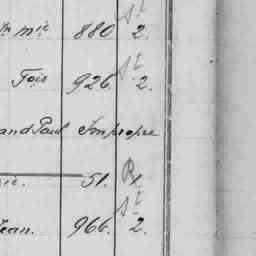 mic 880 St 2.
Fois 926. St 2.
and Paul Impropre
ic. 51. R 1.
Jean. 966. St 2.